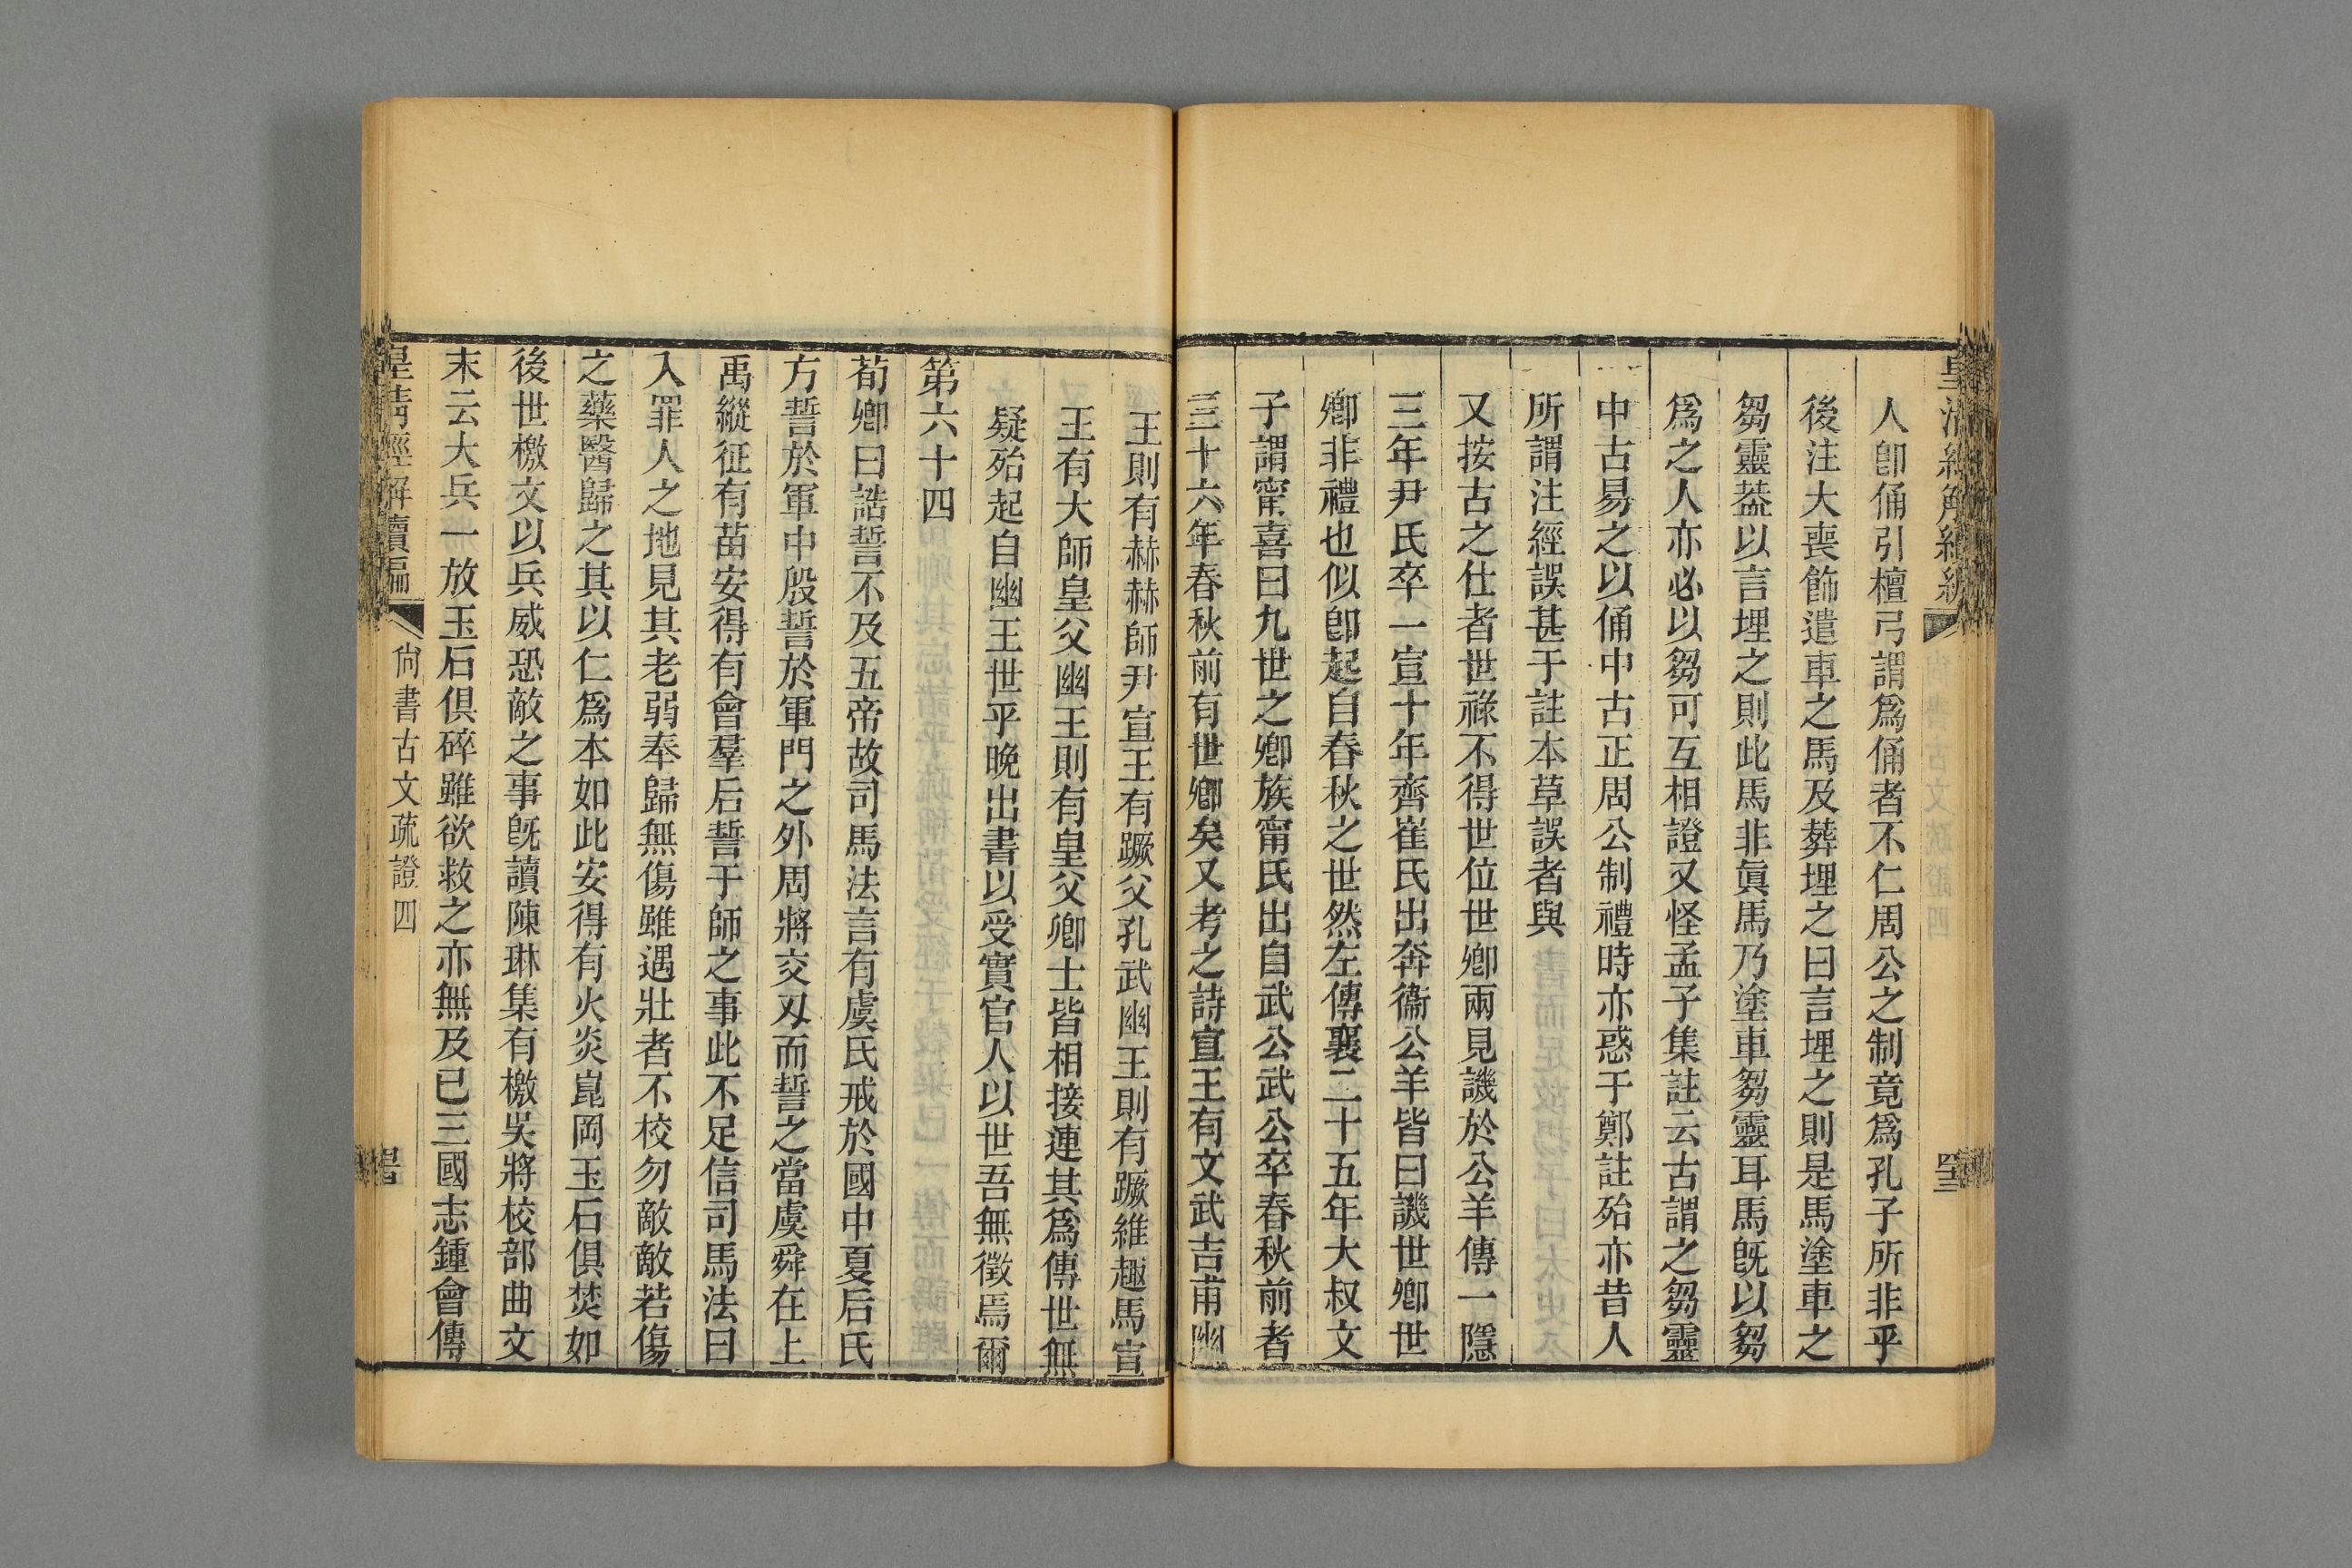 人卽俑引檀弓謂爲俑者不仁周公之制竟爲孔子所非乎
後注大喪飾遣車之馬及葬埋之曰言埋之則是馬塗車之
芻靈葢以言埋之則此馬非眞馬乃塗車芻靈耳馬旣以芻
爲之人亦必以芻可互相證又怪孟子集註云古謂之芻靈
中古易之以俑中古正周公制禮時亦惑于鄭註殆亦昔人
所謂注經誤甚于註本草誤者與
又按古之仕者世祿不得世位世卿兩見譏於公羊傳一隱
三年尹氏卒一宣十年齊崔氏出奔衞公羊皆曰譏世卿世
卿非禮也似卽起自春秋之世然左傳襄二十五年大叔文
子謂甯喜曰九世之卿族甯氏出自武公武公卒春秋前者
三十六年春秋前有世卿矣又考之詩宣王有文武吉甫幽
王則有赫赫師尹宣王有蹶父孔武幽王則有蹶維趣馬宣
王有大師皇父幽王則有皇父卿士皆相接連其爲傳世無
疑殆起自幽王世乎晚出書以受實官人以世吾無徵焉爾
第六十四
荀卿曰誥誓不及五帝故司馬法言有虞氏戒於國中夏后氏
方誓於軍中殷誓於軍門之外周將交刄而誓之當虞舜在上
禹縱征有苗安得有會羣后誓于師之事此不足信司馬法曰
入罪人之地見其老弱奉歸無傷雖遇壯者不校勿敵敵若傷
之藥醫歸之其以仁爲本如此安得有火炎崑岡玉石俱焚如
後世檄文以兵威恐敵之事旣讀陳琳集有檄吳將校部曲文
末云大兵一放玉石俱碎雖欲救之亦無及已三國志鍾會傳
皇清經解續編
尙書古文疏證四